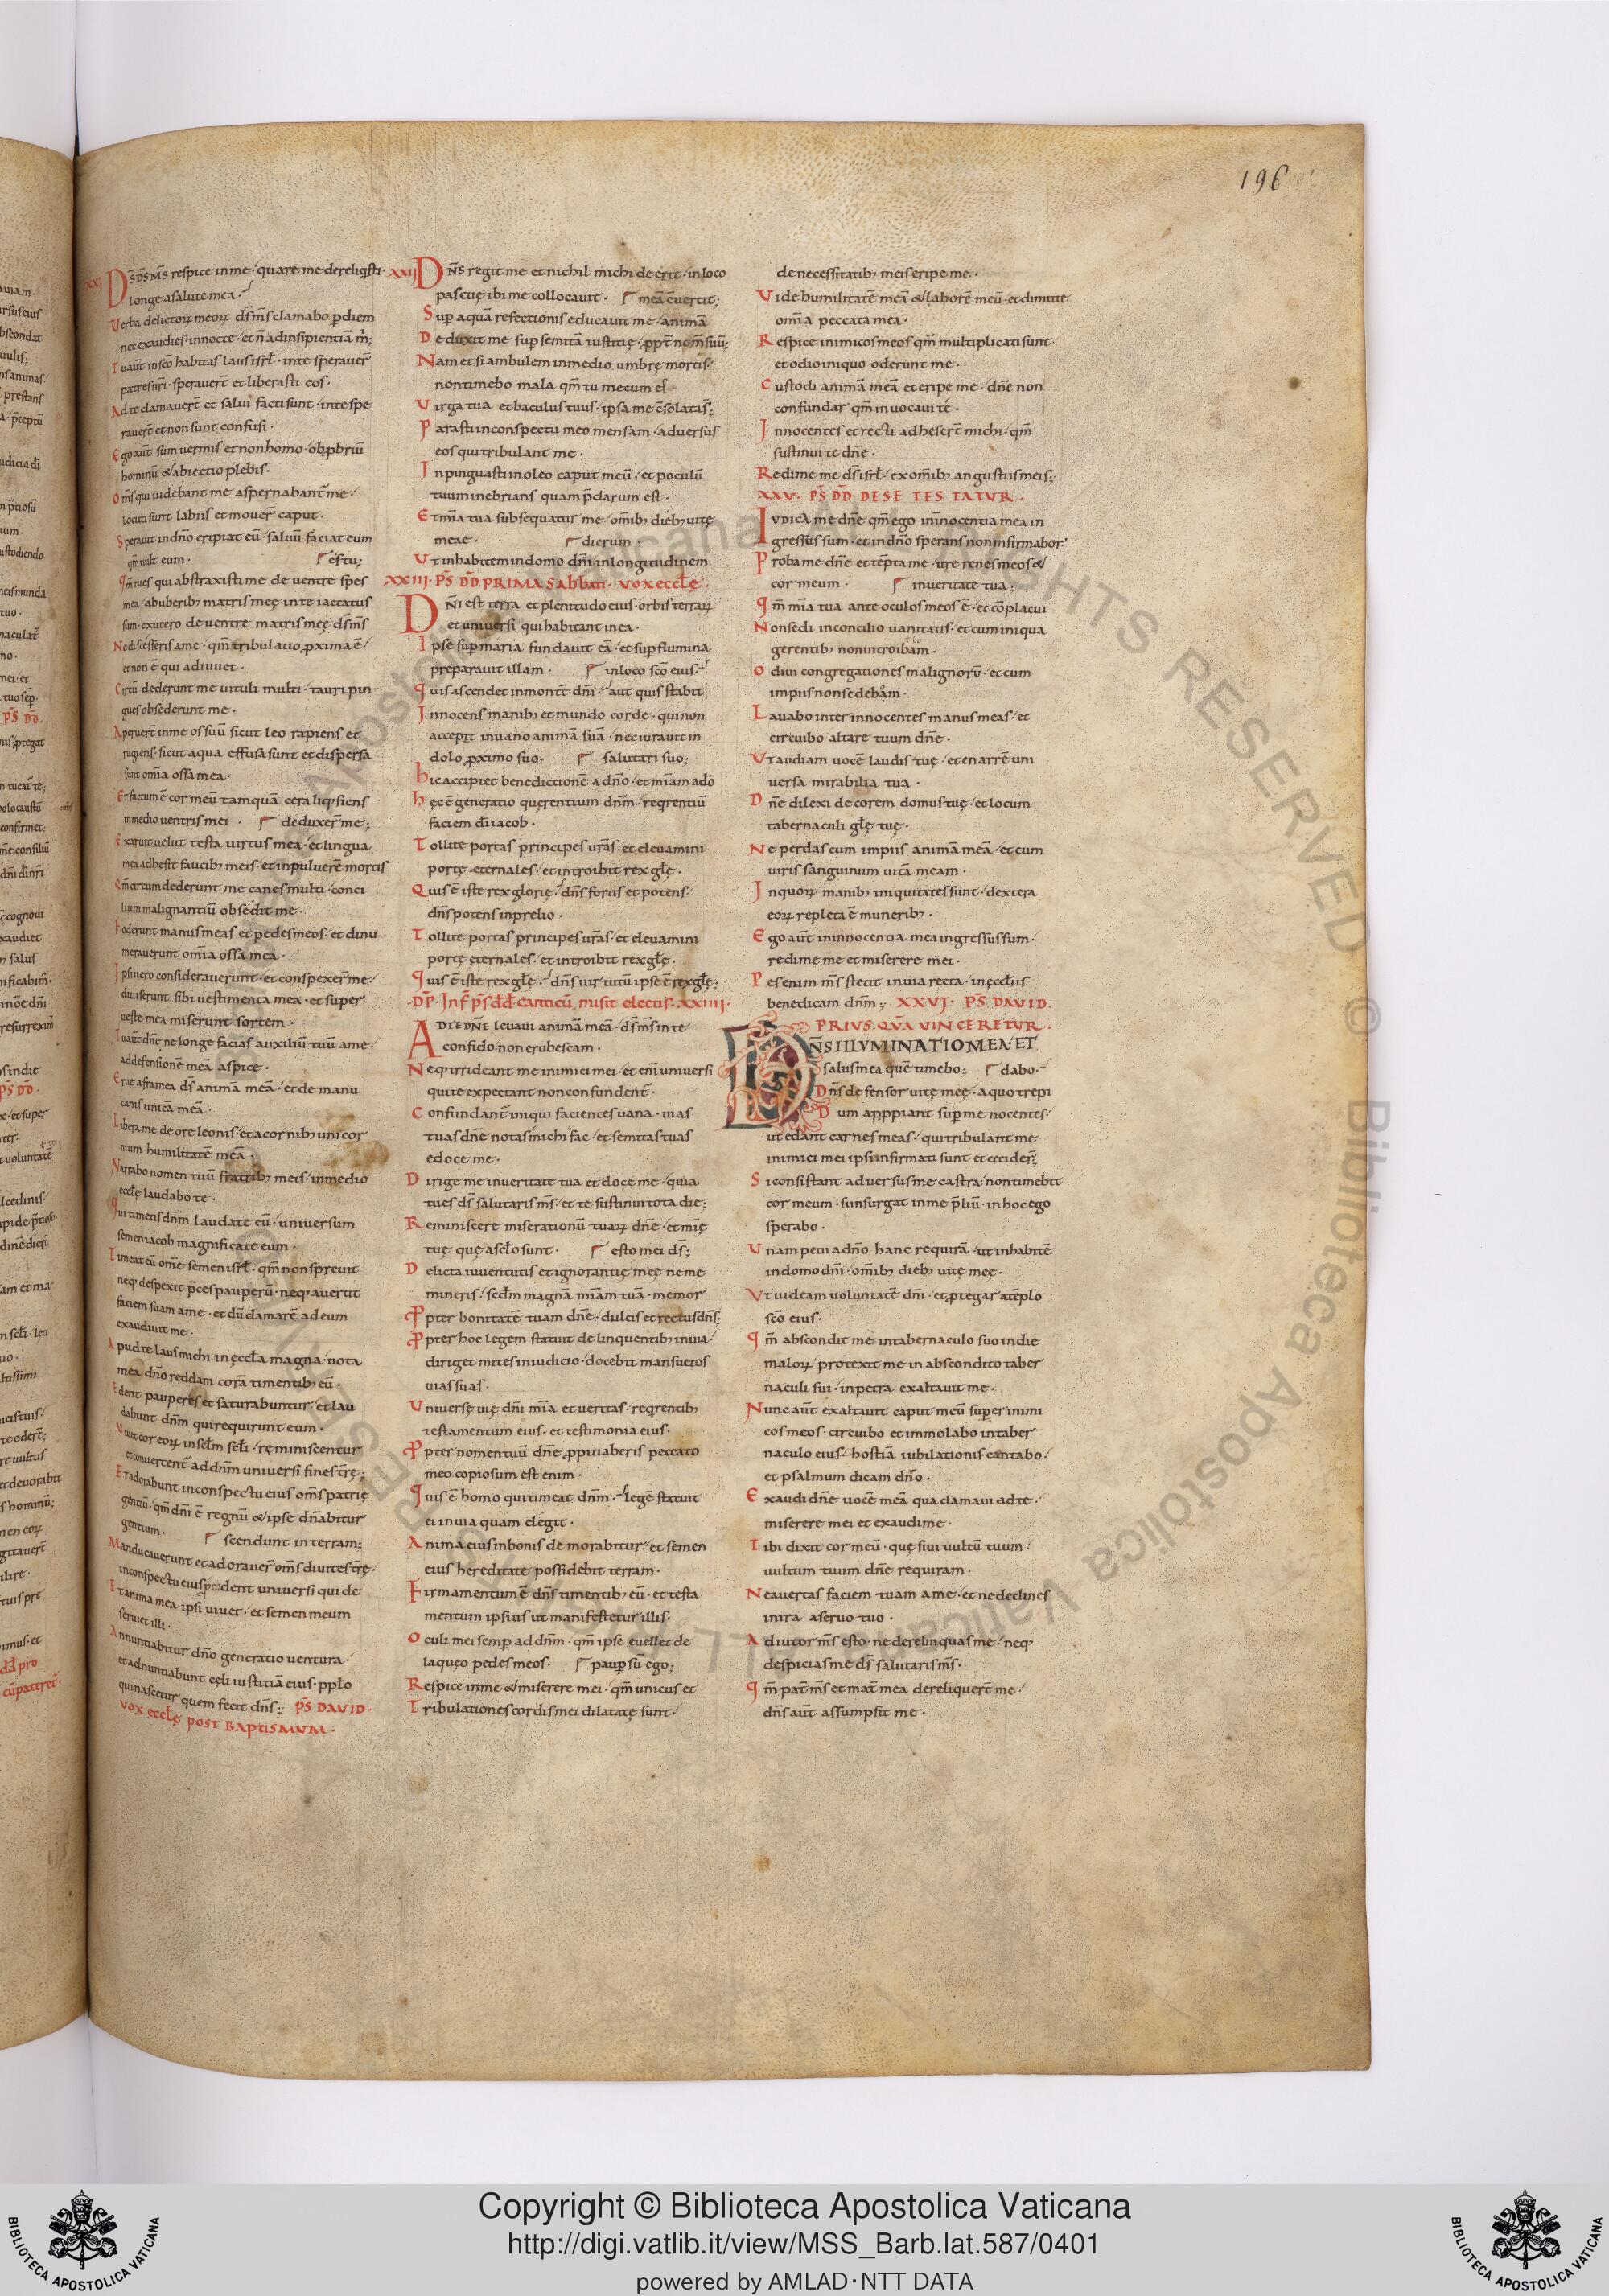 196
XXI D S̄ DS̄ MS̄ respice in me · quare me dereliqsti ·
longe a salute mea ·
Verba delictorꝝ meorꝝ ds̄ ms̄ clamabo p̱ diem
nec exaudies · in nocte · et n̄ ad insipientiā m̄ ;
Tu aūt in sc̄o habitas laus isrl̄ · in te speraver̄
patres nr̄i · speraver̄t et liberasti eos ·
Ad te clamaver̄t et salui facti sunt · in te spe
raver̄t et non sunt confusi ·
Ego aūt sum vermis et non homo · obp̱briū
hominū & abiectio plebis ·
Om̄s qui uidebant me aspernabant̄ me ·
locuti sunt labiis et mover̄ caput ·
Speravit in dn̄o eripiat eū · saluū faciat eum
qm̄ uult eum · es tu ;
Qm̄ tu es qui abstraxisti me de ventre spes
mea · ab uberibꝫ matris meę in te iactatus
sum · ex utero de ventre matris meę ds̄ ms̄
Ne discesseris a me · qm̄ tribulatio p̱xima ē ·
et non ē qui adiuvet ·
Circū dederunt me vituli multi · tauri pin-
gues obsederunt me ·
Aperuer̄t in me os suū sicut leo rapiens et
rugiens · sicut aqua effusa sunt et dispersa
sunt om̄ia ossa mea ·
Et factum ē cor meū tamquā cera liqꝫfiens
in medio ventris mei · deduxer̄ me ;
Exaruit velut testa virtus mea · et lingua
mea adhesit faucibꝫ meis · et in pulverē mortis
Qm̄ circum dederunt me canes multi · conci
lium malignantiū obsedit me ·
Foderunt manus meas et pedes meos · et dinu
meraverunt om̄ia ossa mea ·
Ipsi vero consideraverunt · et conspexer̄ me ·
diviserunt sibi vestimenta mea · et super
veste mea miserunt sortem ·
Tu aūt dn̄e ne longe facias auxiliū tuū a me ·
ad defensionē meā aspice ·
Erue a framea ds̄ animā meā · et de manu
canis unicā meā ·
Libera me de ore leonis · et a cornibꝫ unicor
nium humilitatē meā ·
Narrabo nomen tuū fratribꝫ meis · in medio
ęccłę laudabo te ·
Qui timetis dn̄m laudate eū · universum
semen iacob magnificate eum ·
Timeat eū om̄e semen isrl̄ · qm̄ non sprevit
neqꝫ despexit p̄ces pauperū · neqꝫ avertit
faciem suam a me · et dū clamarē ad eum
exaudivit me ·
Apud te laus michi in ęccła magna · vota
mea dn̄o reddam corā timentibꝫ eū ·
Edent pauperes et saturabuntur · et lau
dabunt dn̄m qui requirunt eum ·
Vivet cor eorꝝ in scl̄m scl̄i · reminiscentur
et convertent̄ ad dn̄m universi fines tr̄ę ;
Et adorabunt in conspectu eius om̄s patrię
gentiū · qm̄ dn̄i ē regnū & ipse dn̄abitur
gentium · scendunt in terram ;
Manducaverunt et adoraver̄ om̄s divites tr̄ę ·
in conspectu eius p̱cident universi qui de
Et anima mea ipsi vivet · et semen meum
serviet illi ·
Annuntiabitur dn̄o generatio ventura ·
et adnuntiabunt cęli iustitiā eius · pp̄lo
qui nascetur quem fecit dn̄s ; PS̄ DAVID ·
VOX ECCŁĘ POST BAPTISMUM ·
XXII DN̄S regit me et nichil michi deerit · in loco
pascuę ibi me collocavit · meā c̄vertit ;
Sup̱ aquā refectionis educavit me · animā
Deduxit me sup̱ semitā iustitię · p̱pt̄ nom̄ suū ;
Nam et si ambulem in medio umbrę mortis ·
non timebo mala qm̄ tu mecum es
Virga tua et baculus tuus · ipsa me c̄solata s̄ ;
Parasti in conspectu meo mensam · adversus
eos qui tribulant me ·
Inpinguasti in oleo caput meū · et poculū
tuum inebrians quam p̄clarum est ·
Et mīa tua subsequatur me · om̄ibꝫ diebꝫ vitę
meae · dierum ·
Ut inhabitem in domo dn̄i · in longitudinem
XXIII · PS̄ DD̄ · PRIMA Sabbati · VOX ECCŁĘ ·
DN̄I est terra et plenitudo eius · orbis terrarꝝ
et universi qui habitant in ea ·
Ipse sup̱ maria fundavit eā · et sup̱ flumina
preparavit illam · in loco sc̄o eius ·
Quis ascendet in montē dn̄i · aut quis stabit
Innocens manibꝫ et mundo corde · qui non
accepit in vano animā suā · nec iuravit in
dolo p̱ximo suo · salutari suo ;
Hic accipiet benedictionē a dn̄o · et mīam a dō
Hęc ē generatio querentium dn̄m · reqrentiū
faciem dī iacob ·
Tollite portas principes vr̄as · et elevamini
portę eternales · et introibit rex gl̄ę ·
Quis ē iste rex glorię · dn̄s fortis et potens ·
dn̄s potens in prelio ·
Tollite portas principes vr̄as · et elevamini
portę ęternales · et introibit rex gl̄ę ·
Quis ē iste rex gl̄ę · dn̄s virtutū ipse ē rex gl̄ę ;
DP̄ · INF̄ PS̄ DD̄ canticū misit electis · XXIIII ·
AD TE DN̄E levavi animā meā · ds̄ ms̄ in te
confido · non erubescam ·
Neqꝫ irrideant me inimici mei · et enī universi
qui te expectant non confundent̄ ·
Confundant̄ iniqui facientes vana · vias
tuas dn̄e notas michi fac · et semitas tuas
edoce me ·
Dirige me in veritate tua et doce me · quia
tu es ds̄ salutaris ms̄ · et te sustinui tota die ;
Reminiscere miserationū tuarꝝ dn̄e · et mīę
tuę quę a scl̄o sunt · esto mei ds̄ ;
Delicta iuventutis et ignorantię meę ne me
mineris · scd̄m magnā mīam tuā · memor
Ꝓpter bonitatē tuam dn̄e · dulcis et rectus dn̄s ;
Ꝓpter hoc legem statuit delinquentibꝫ in via ·
diriget mites in iudicio · docebit mansuetos
vias suas ·
Universę vię dn̄i mīa et veritas · reqrentibꝫ
testamentum eius · et testimonia eius ·
Ꝓpter nomen tuū dn̄e p̱pitiaberis peccato
meo copiosum est enim ·
Quis ē homo qui timeat dn̄m · legē statuit
ei in via quam elegit ·
Anima eius in bonis demorabitur · et semen
eius hereditate possidebit terram ·
Firmamentum ē dn̄s timentibꝫ eū · et testa
mentum ipsius ut manifestetur illis ·
Oculi mei semp̱ ad dn̄m · qm̄ ipse evellet de
laqueo pedes meos · paup̱ sū ego ;
Respice in me & miserere mei · qm̄ unicus et
Tribulationes cordis mei dilatatę sunt ·
de necessitatibꝫ meis eripe me ·
Vide humilitatē meā & laborē meū · et dimitte
om̄ia peccata mea ·
Respice inimicos meos qm̄ multiplicati sunt ·
et odio iniquo oderunt me ·
Custodi animā meā et eripe me · dn̄e non
confundar qm̄ invocavi te ·
Innocentes et recti adheser̄t michi · qm̄
sustinui te dn̄e ·
Redime me ds̄ isrl̄ · ex om̄ibꝫ angustiis meis ;
XXV · PS̄ DD̄ DE SE TESTATUR ·
IUDICA me dn̄e qm̄ ego in innocentia mea in
gressus sum · et in dn̄o sperans non infirmabor ·
Proba me dn̄e et tēpta me · ure renes meos &
cor meum · in veritate tua ;
Qm̄ mīa tua ante oculos meos ē · et cōplacui
Non sedi in concilio vanitatis · et cum iniqua
gerentibꝫ non introibam ·
Odivi congregationes malignorū · et cum
impiis non sedebam ·
Lavabo inter innocentes manus meas · et
circuibo altare tuum dn̄e ·
Ut audiam vocē laudis tuę · et enarrē uni
versa mirabilia tua ·
Dn̄e dilexi decorem domus tuę · et locum
tabernaculi gl̄ę tuę ·
Ne perdas cum impiis animā meā · et cum
viris sanguinum vitā meam ·
In quorꝝ manibꝫ iniquitates sunt · dextera
eorꝝ repleta ē muneribꝫ ·
Ego aūt in innocentia mea ingressus sum ·
redime me et miserere mei ·
Pes enim ms̄ stetit in via recta · in ęcclīis
benedicam dn̄m ; XXVI · PS̄ DAVID ·
PRIUS QUA VINCERETUR ·
DN̄S ILLUMINATIO MEA · ET
salus mea quē timebo ; dabo ·
Dn̄s defensor vitę meę · a quo trepi
Dum app̱piant sup̱ me nocentes ·
ut edant carnes meas · qui tribulant me
inimici mei ipsi infirmati sunt et cecider̄ ;
Si consistant adversus me castra · non timebit
cor meum · si insurgat in me p̄liū · in hoc ego
sperabo ·
Unam petii a dn̄o hanc requirā · ut inhabitē
in domo dn̄i · om̄ibꝫ diebꝫ vitę meę ·
Ut videam voluntatē dn̄i · et p̱tegar a tēplo
sc̄o eius ·
Qm̄ abscondit me in tabernaculo suo in die
malorꝝ · protexit me in abscondito taber
naculi sui · in petra exaltavit me ·
Nunc aūt exaltavit caput meū super inimi
cos meos · circuibo et immolabo in taber
naculo eius · hostiā iubilationis cantabo ·
et psalmum dicam dn̄o ·
Exaudi dn̄e vocē meā qua clamavi ad te ·
miserere mei et exaudi me ·
Tibi dixit cor meū · quęsivi vultū tuum ·
vultum tuum dn̄e requiram ·
Ne avertas faciem tuam a me · et ne declines
in ira a servo tuo ·
Adiutor ms̄ esto · ne derelinquas me · neqꝫ
despicias me ds̄ salutaris ms̄ ·
Qm̄ pat̄ ms̄ et mat̄ mea dereliquer̄t me ·
dn̄s aūt assumpsit me ·
Copyright © Biblioteca Apostolica Vaticana
http://digi.vatlib.it/view/MSS_Barb.lat.587/0401
powered by AMLAD·NTT DATA
BIBLIOTECA APOSTOLICA VATICANA
BIBLIOTECA APOSTOLICA VATICANA